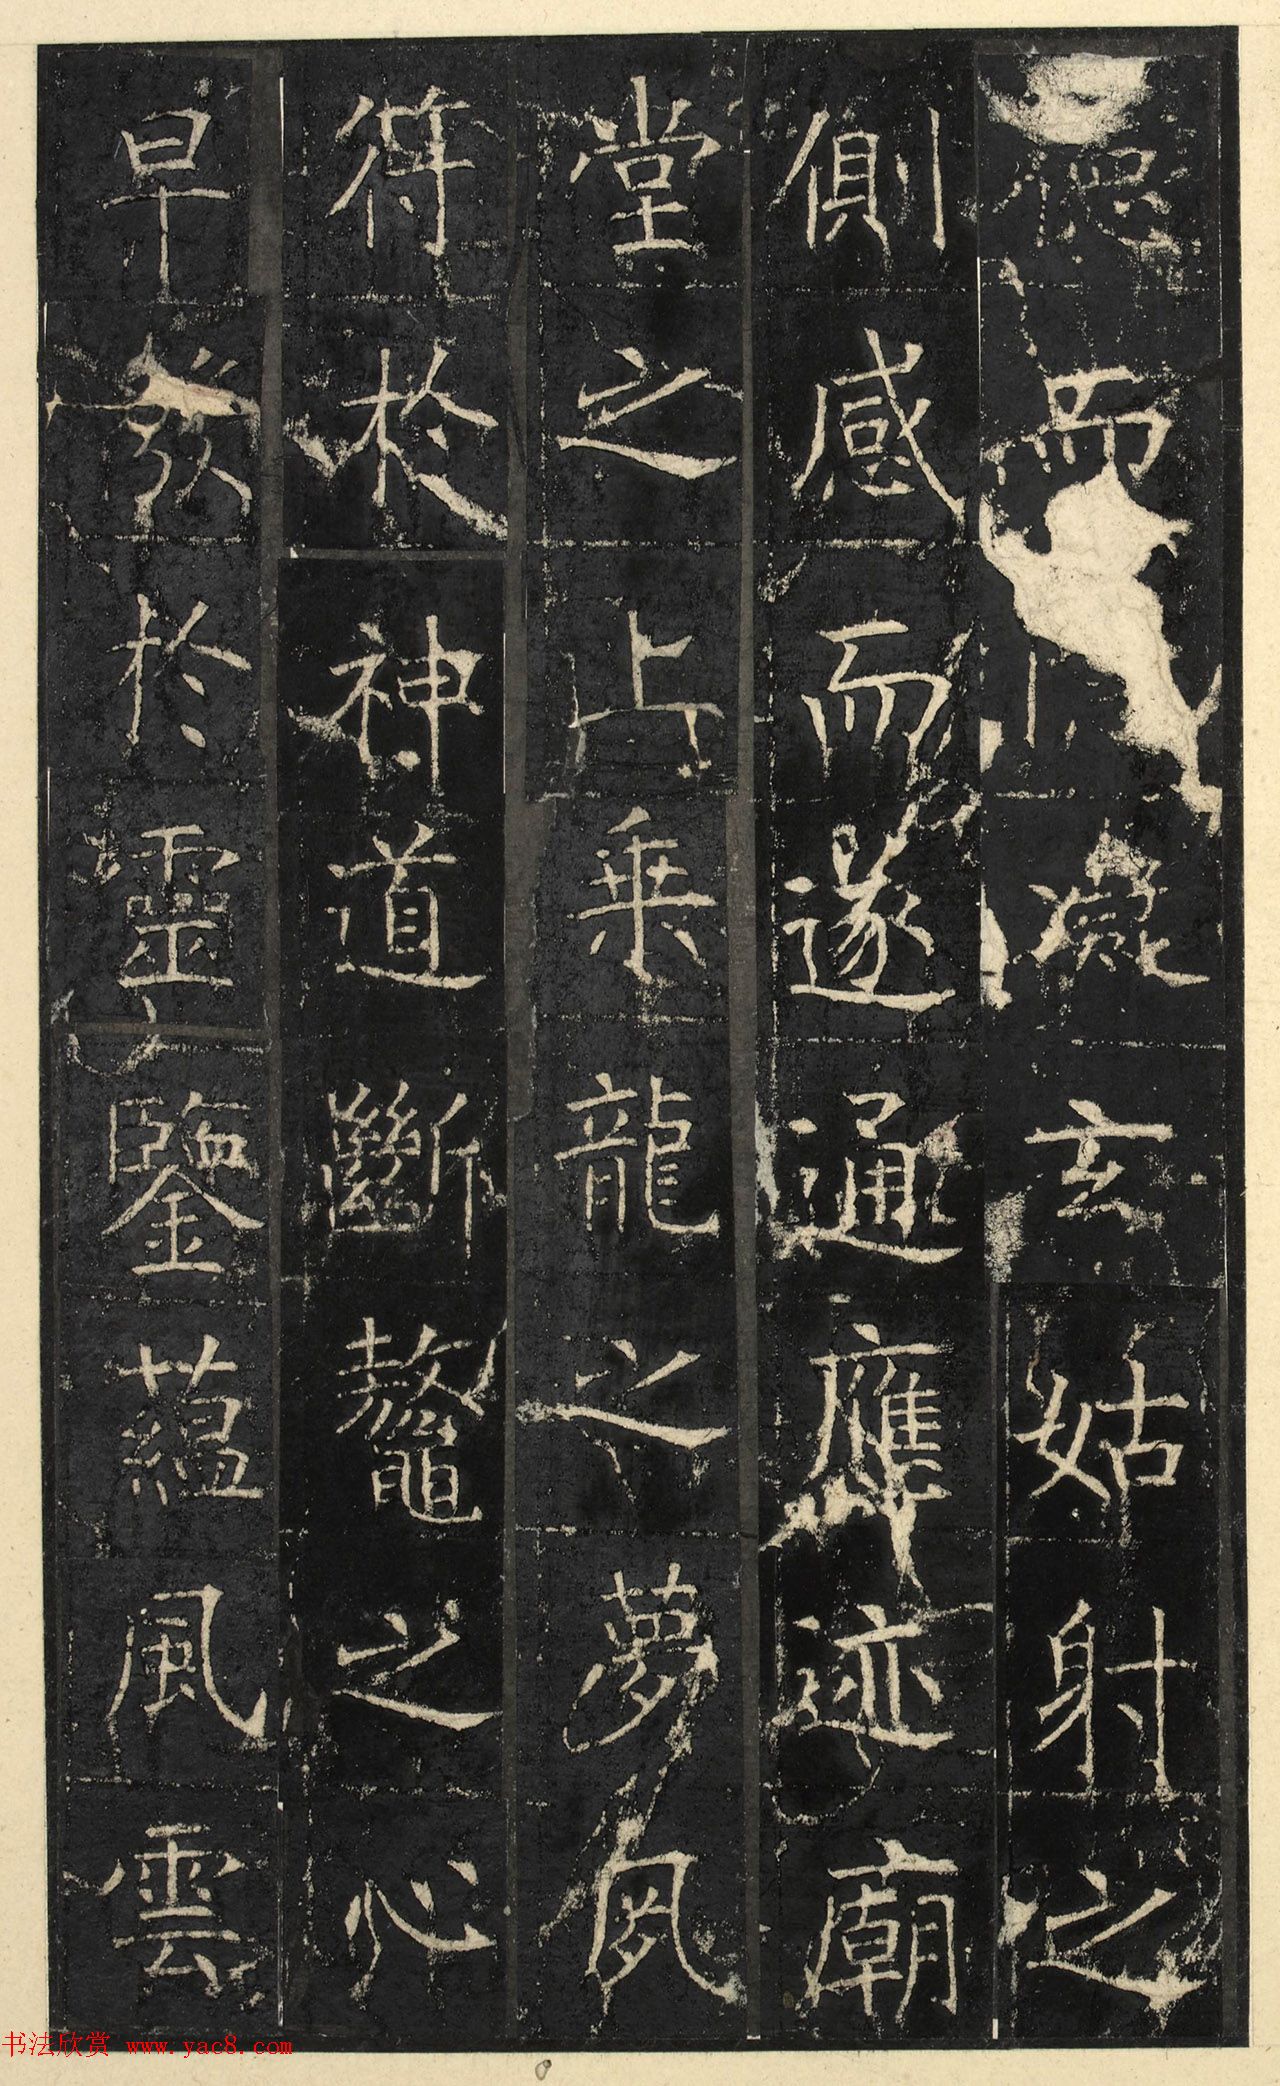 而凝玄姑射之
側感而遂通應迹廟
堂之上乘龍之夢夙
符於神道斷鼇之心
早發於靈鑒蘊風雲
书法欣赏 www.yac8.com